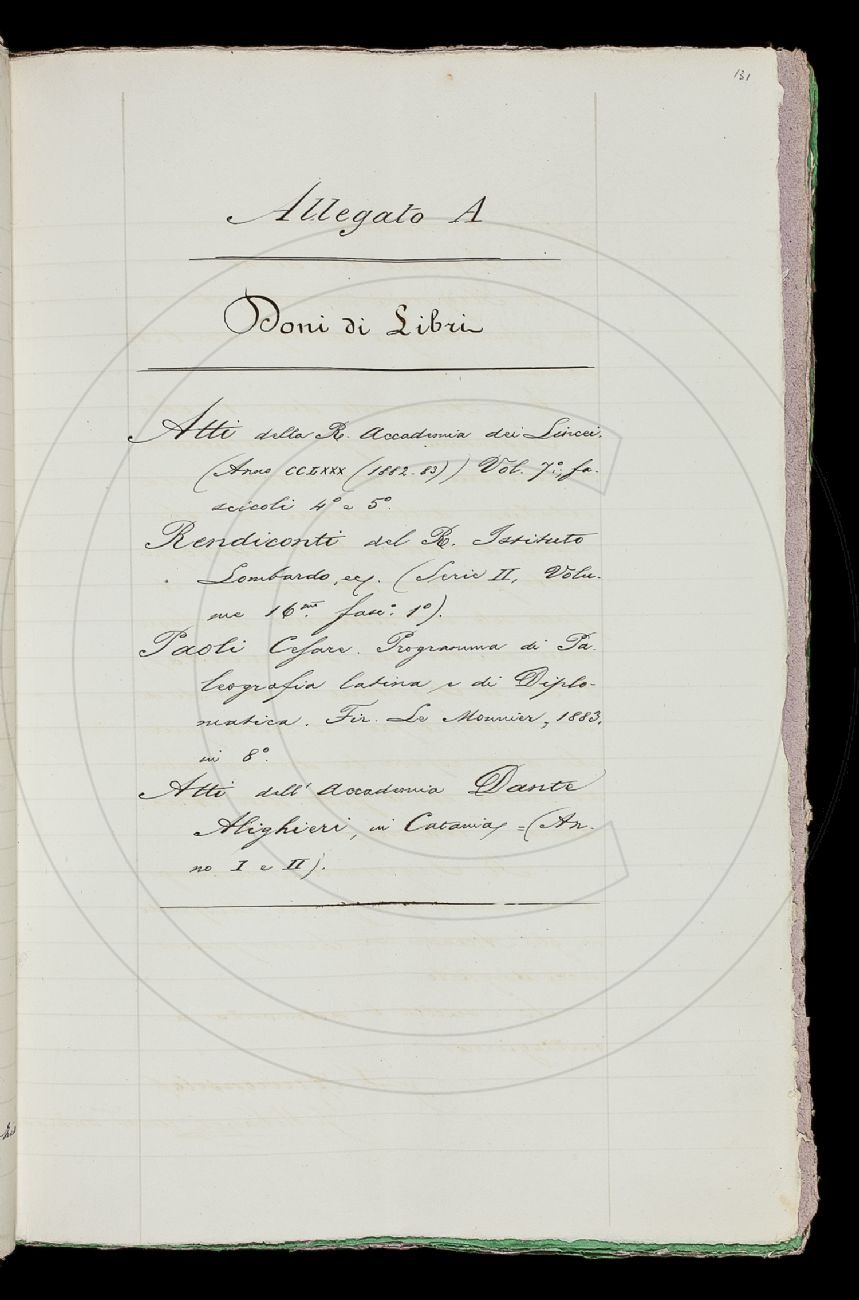 131
Allegato A
Doni di Libri
Atti della R. Accademia dei Lincei.
(Anno CCLXXX (1882-83)) Vol. 7º; fa-
scicoli 4º e 5º.
Rendiconti del R. Istituto
Lombardo, ec. (Serie II, Volu-
me 16mo. fasc: 1º).
Paoli Cesare. Programma di Pa-
leografia latina e di Diplo-
matica. Fir. Le Monnier, 1883.
in 8º.
Atti dell'Accademia Dante
Alighieri, in Catania, = (An-
no I e II).